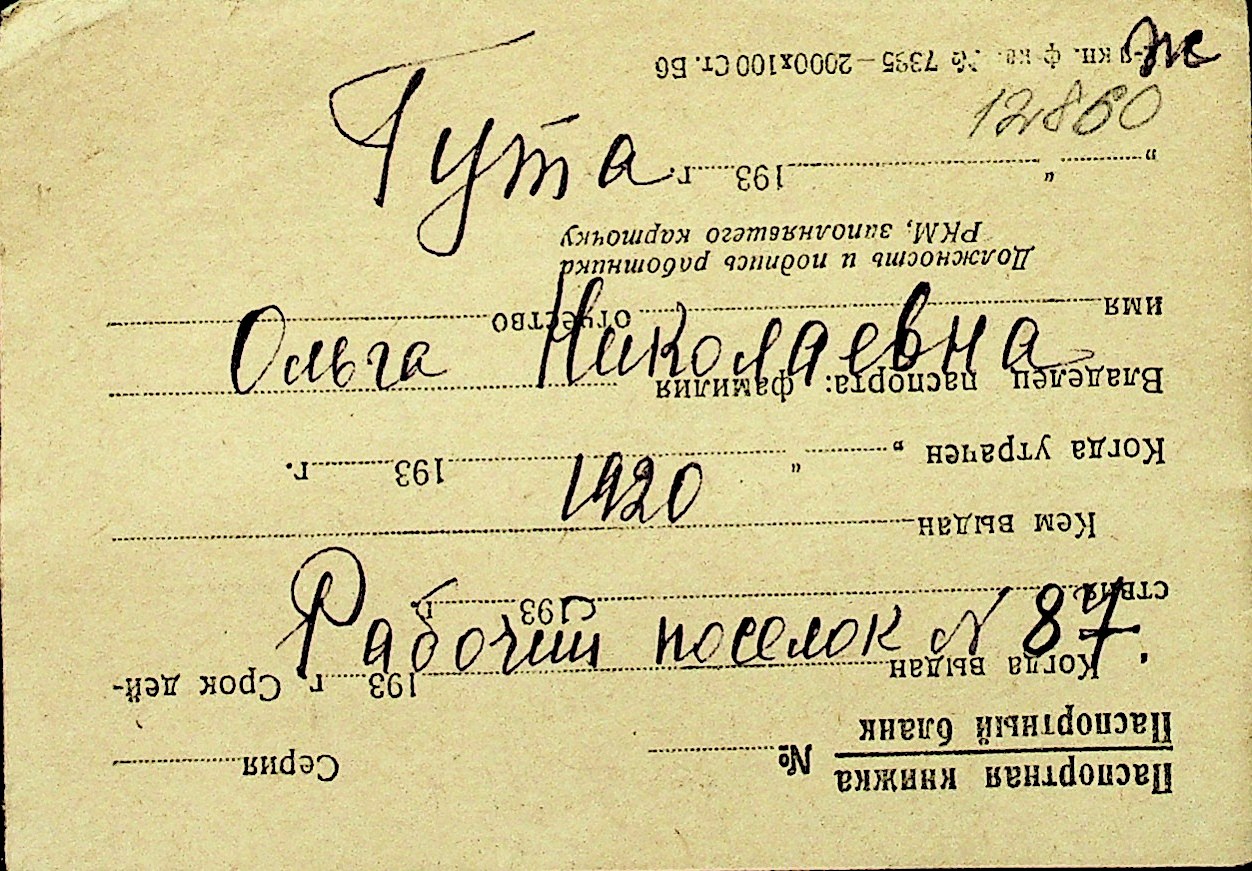 ж
12860
Гута
Ольга Николаевна
1920
Рабочий поселок N 87.
Паспортная книжка
Паспортный бланк
№ Серия
Когда выдан 193 г Срок дей-
ствия 193 г.
Кем выдан
Когда утрачен „ “ 193 г.
Владелец паспорта: фамилия
имя отчество
Должность и подпись работника
РКМ, заполнявшего карточку
„ “ 193 г.
№ 7395—2000х100 Ст. Б6